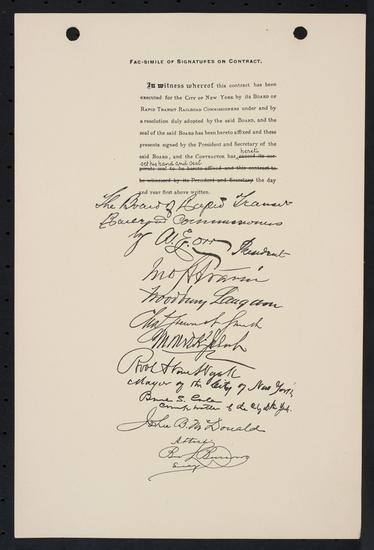 FAC-SIMILE OF SIGNATURES ON CONTRACT.
In witness whereof this contract has been
executed for the CITY OF NEW YORK by its BOARD OF
RAPID TRANSIT RAILROAD COMMISSIONERS under and by
a resolution duly adopted by the said BOARD, and the
seal of the said BOARD has been hereto affixed and these
presents signed by the President and Secretary of the
hereto
said BOARD, and the CONTRACTOR has caused its cor-
set his hand and seal
porate seal to be hereto affixed and this contract to
be witnessed by its President and Secretary the day
and year first above written.
The Board of Rapid Transit
Railroad Commissioners
by A. E. Orr President
Jno H Starin
Woodbury Langdon
Charles Stewart Smith
Morris K. Jesup
Robt A Van Wyck
Mayor of the City of New York
Bird S. Coler
Comptroller of the City of N. Y.
John B. McDonald
Attest
Secy